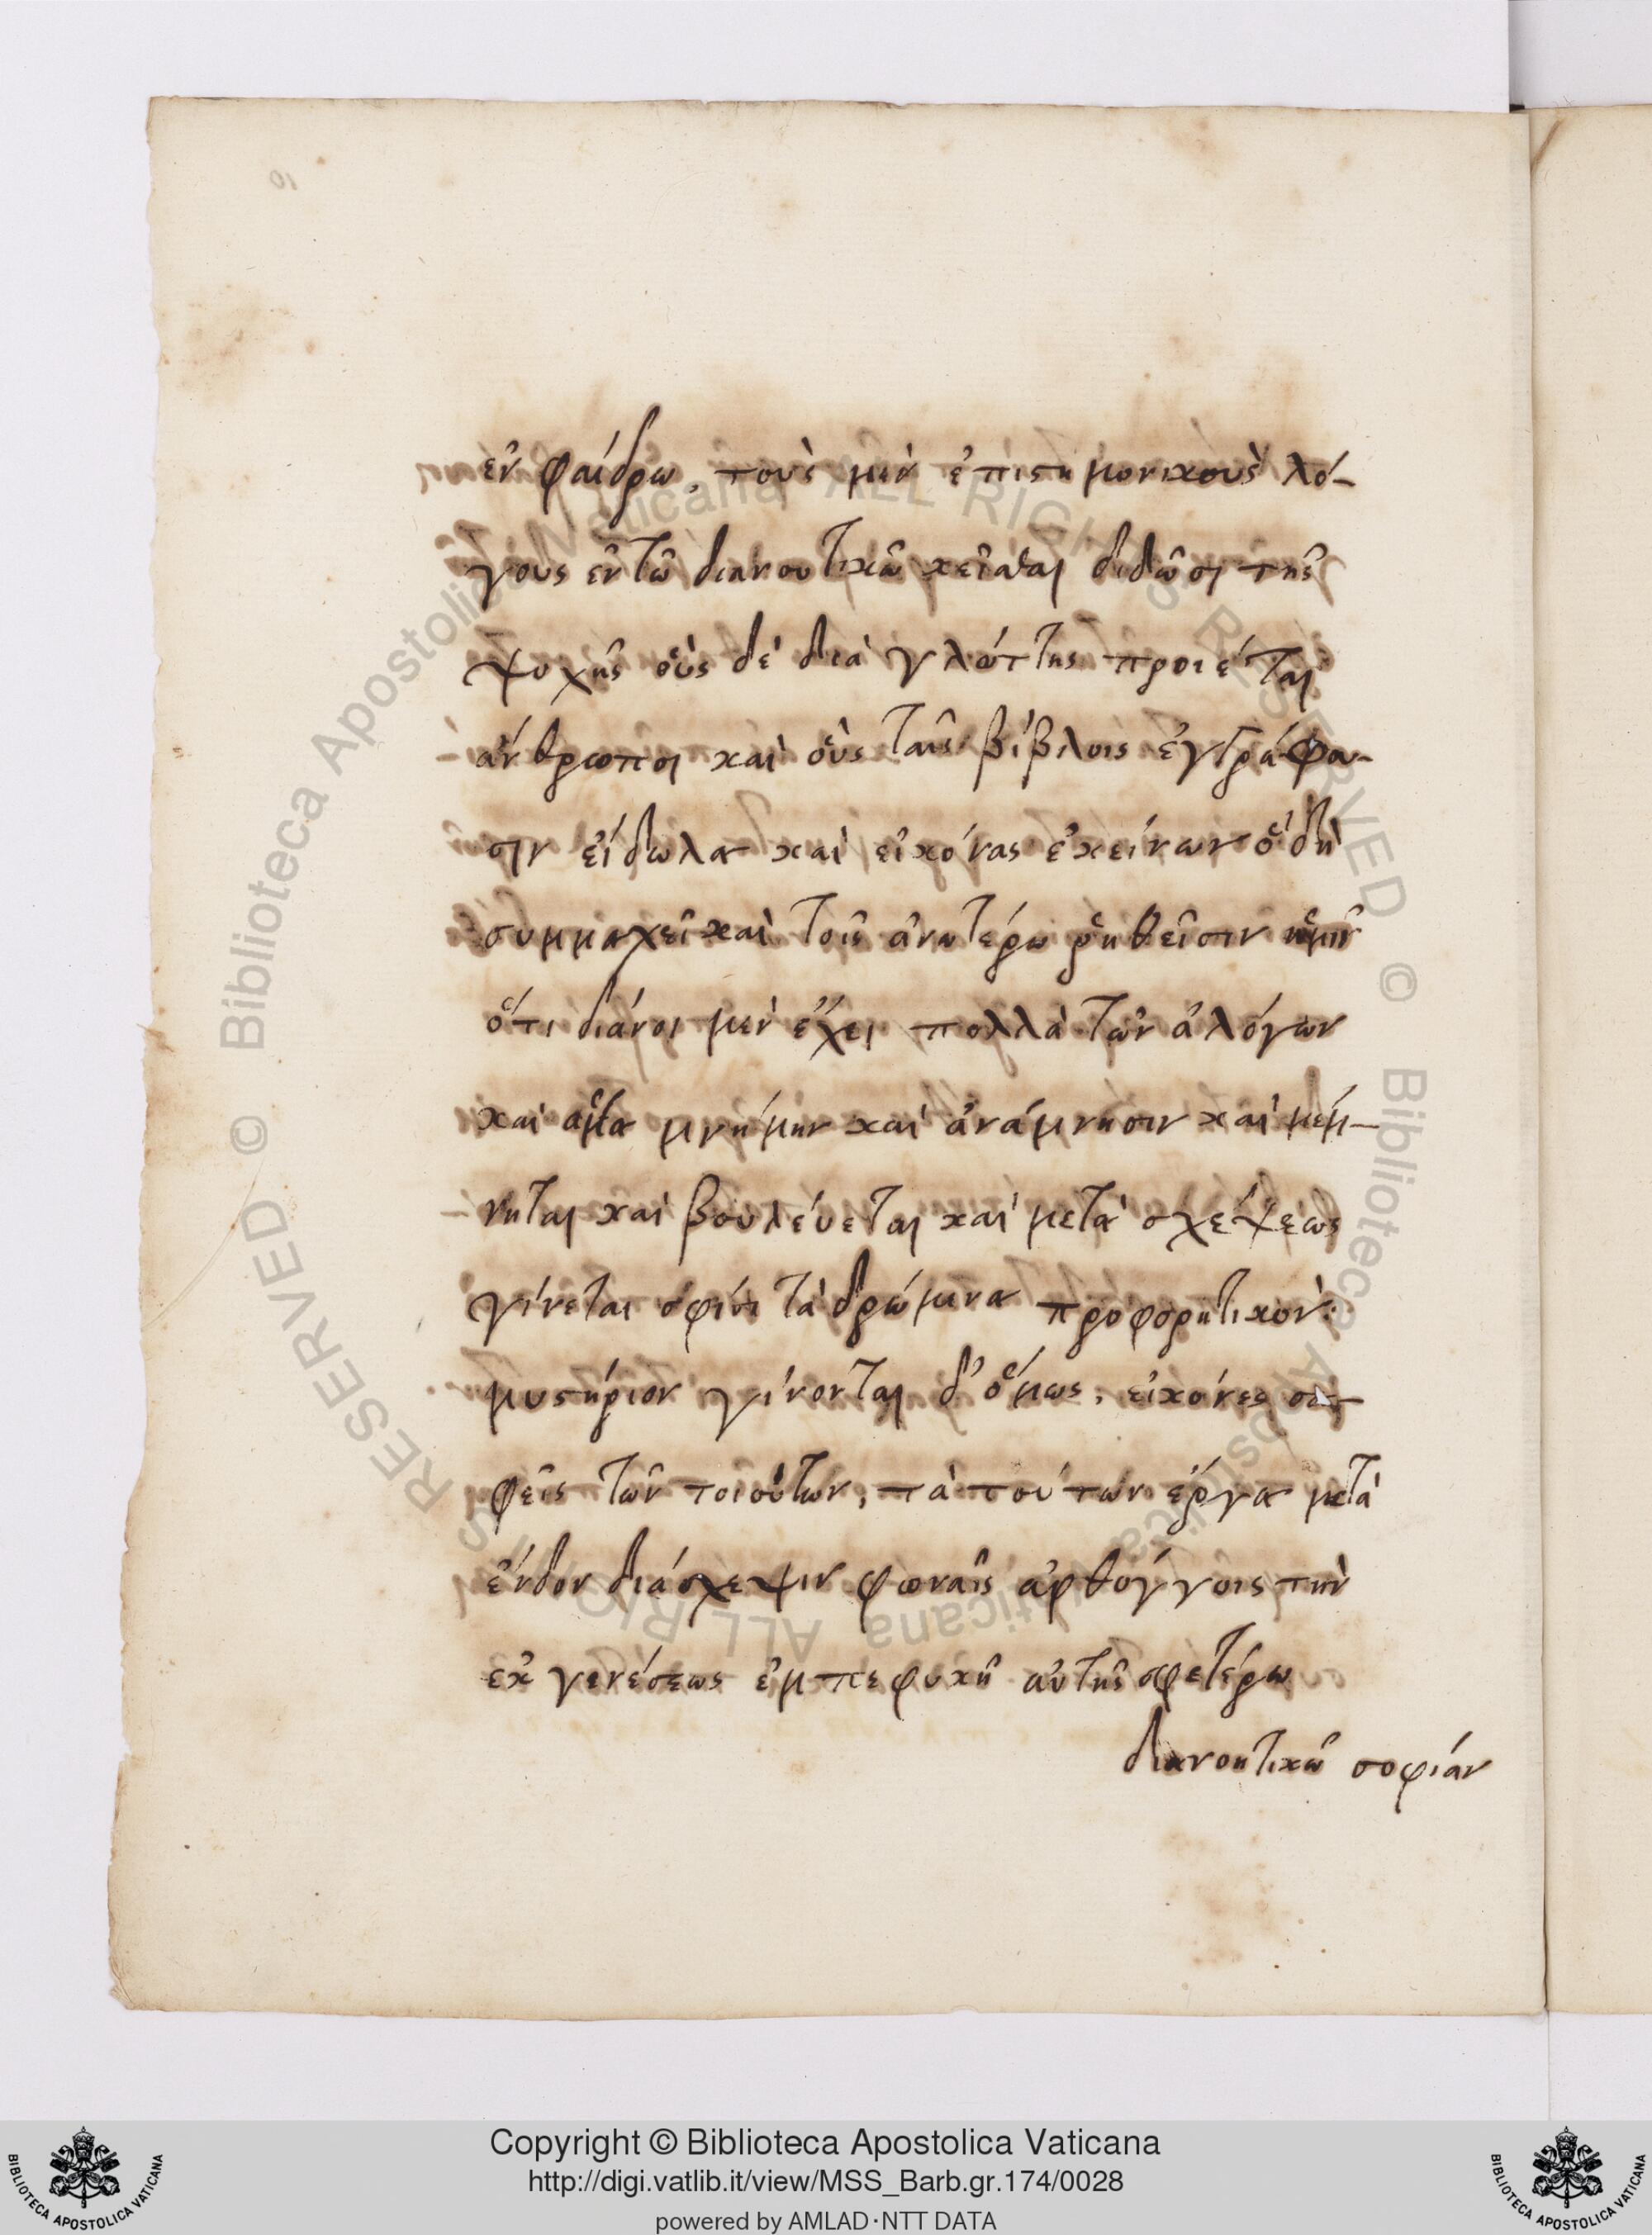 ἐν φαίδρω, τοὺς μὲν ἐπιστημονικοὺς λό-
γους ἐν τῶ διανουτικῶ κεῖσθαι διδῶσι τῆς
ψυχῆς οὓς δὲ διὰ γλώττης προιέται
ἄνθρωποι καὶ οὓς ταῖς βίβλοις ἐγγράφου-
σιν εἴδωλα καὶ εἰκόνας ἐκείνων ὃ δὴ
συμμαχεῖ καὶ τοῖς ἀνωτέρω ῥηθεῖσιν ἡμῖν
ὅτι διάνοι μὲν ἔχει πολλὰ τῶν ἀλόγων
καὶ ἅμα μνήμην καὶ ἀνάμνησιν καὶ μέμ-
νηται καὶ βουλεύεται καὶ μετὰ σκέψεως
γίνεται σφίσι τὰ δρώμενα προφορητικὸν.
μυστήριον γίνονται δ' ὅμως, εἰκόνες σα-
φεῖς τῶν τοιούτων, τὰ τούτων ἔργα μετὰ
ἔνδον διάσκεψιν φωναῖς ἀρθόγγοις τὴν
ἐκ γενέσεως ἐμπεφυκῆ αὐτῆς σφετέρω
διανοητικῶ σοφίαν
Copyright © Biblioteca Apostolica Vaticana
http://digi.vatlib.it/view/MSS_Barb.gr.174/0028
powered by AMLAD·NTT DATA